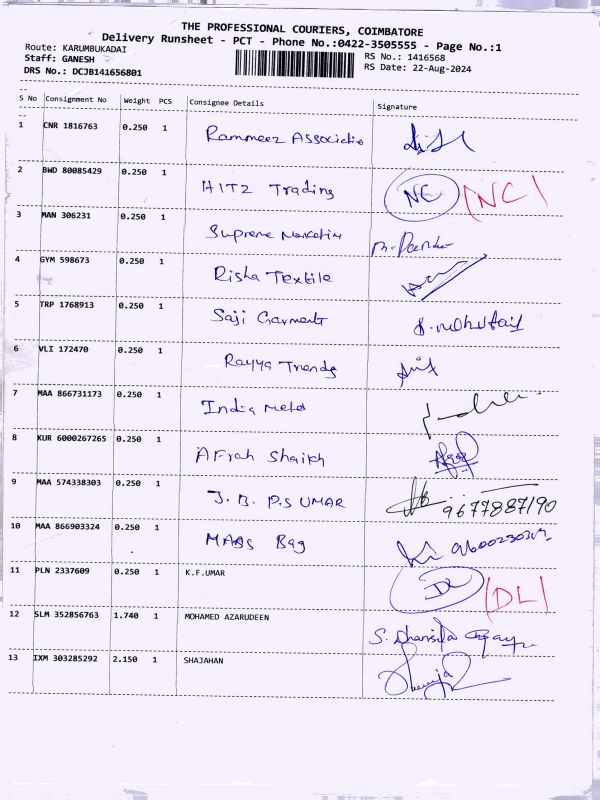 THE PROFESSIONAL COURIERS, COIMBATORE
Delivery Runsheet - PCT - Phone No.:0422-3505555 - Page No.:1
Route: KARUMBUKADAI
Staff: GANESH
DRS No.: DCJB141656801
RS No.: 1416568
RS Date: 22-Aug-2024
S No Consignment No Weight PCS Consignee Details Signature
1 CNR 1816763 0.250 1 Rammeez Associatio
2 BWD 80085429 0.250 1 HITZ Trading NC (NC)
3 MAN 306231 0.250 1 Supreme Marketin
4 GYM 598673 0.250 1 Risha Textile
5 TRP 1768913 0.250 1 Saji Garments
6 VLI 172470 0.250 1 Rayya Trends
7 MAA 866731173 0.250 1 India Metal
8 KUR 6000267265 0.250 1 Afrah Shaikh
9 MAA 574338303 0.250 1 J. B. P.S UMAR 9677887190
10 MAA 866903324 0.250 1 MAAS Bag
11 PLN 2337609 0.250 1 K.F.UMAR DL (DL)
12 SLM 352856763 1.740 1 MOHAMED AZARUDEEN
13 IXM 303285292 2.150 1 SHAJAHAN